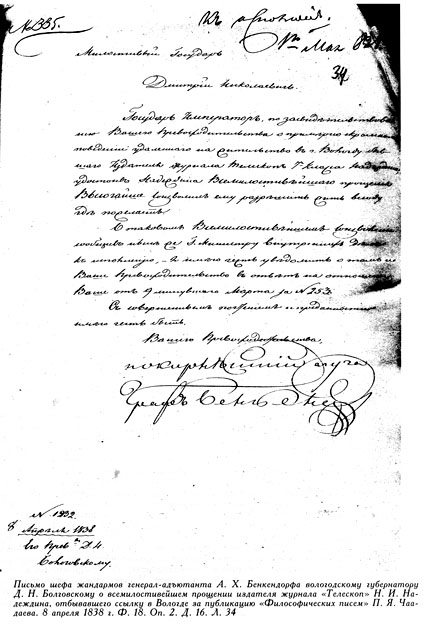 № 335.
34
Милостивый Государь
Дмитрій Николаевичъ.
Государь Императоръ, по засвидѣтельствова-
нію Вашего Превосходительства о примѣрно скромномъ
поведеніи удаленнаго на жительство въ г. Вологду быв-
шаго Издателя журнала Телескопъ
удостоивъ Надеждина Всемилостивѣйшаго прощенія
Высочайше соизволилъ ему разрѣшить жить всюду
гдѣ пожелаетъ.
О таковомъ Всемилостивѣйшемъ соизволеніи
сообщивъ Г. Министру Внутреннихъ Дѣлъ
къ исполненію, – я имѣю честь увѣдомить о томъ
Ваше Превосходительство въ отвѣтъ на отношеніе
Ваше отъ 9 минувшаго Марта за № 253.
Съ совершеннымъ почтеніемъ и преданностію
имѣю честь быть,
Вашего Превосходительства,
покорнѣйшій слуга
Графъ Бенкендорфъ
№ 1932
8 Апрѣля 1838
Его Прев. Д. Н.
Болговскому.
Письмо шефа жандармов генерал-адъютанта А. Х. Бенкендорфа вологодскому губернатору
Д. Н. Болговскому о всемилостивейшем прощении издателя журнала «Телескоп» Н. И. На-
деждина, отбывавшего ссылку в Вологде за публикацию «Философических писем» П. Я. Чаа-
даева. 8 апреля 1838 г. Ф. 18. Оп. 2. Д. 16. Л. 34